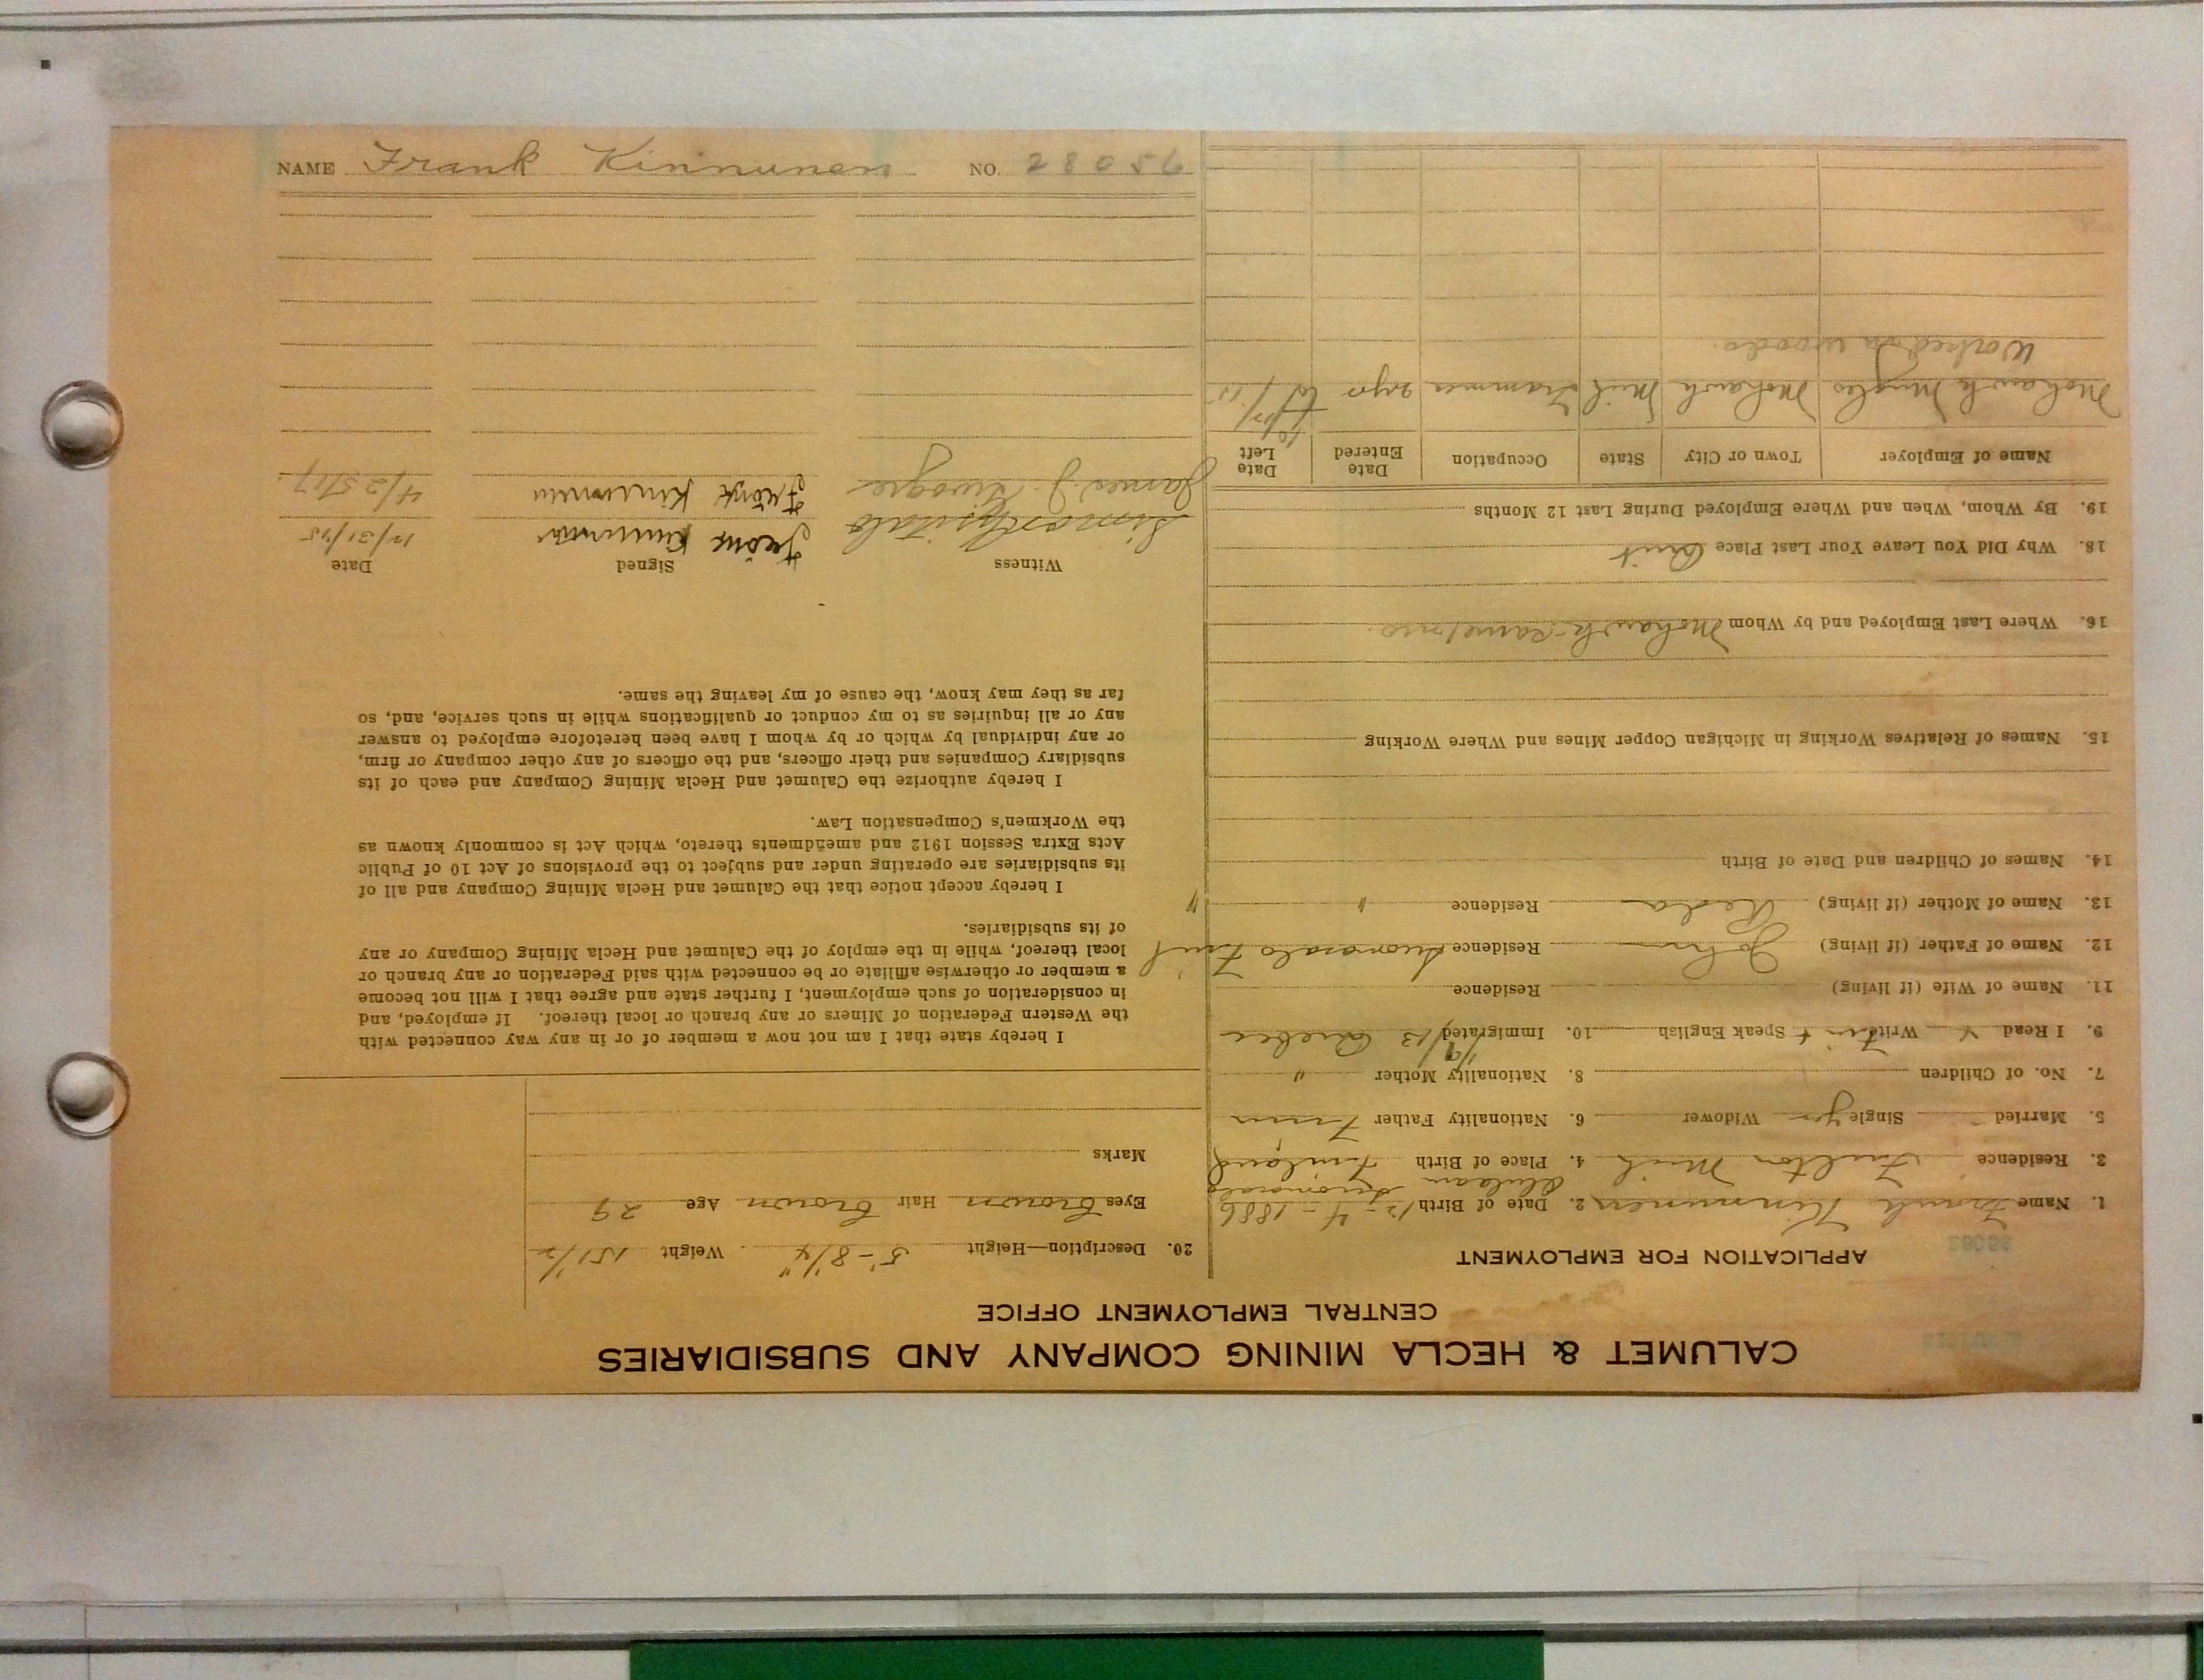 CALUMET & HECLA MINING COMPANY AND SUBSIDIARIES
CENTRAL EMPLOYMENT OFFICE
APPLICATION FOR EMPLOYMENT
1. Name Frank Kinnunen 2. Date of Birth 12-4-1886
3. Residence Fulton Mich 4. Place of Birth Finland
5. Married Single yes Widower 6. Nationality Father Finn
7. No. of Children 8. Nationality Mother "
9. I Read Write Speak English 10. Immigrated
11. Name of Wife (if living) Residence
12. Name of Father (if living) John Residence
13. Name of Mother (if living) Residence " "
14. Names of Children and Date of Birth
15. Names of Relatives Working in Michigan Copper Mines and Where Working
16. Where Last Employed and by Whom Mohawk
18. Why Did You Leave Your Last Place Quit
19. By Whom, When and Where Employed During Last 12 Months
Name of Employer Town or City State Occupation Date Entered Date Left
Mohawk Mohawk Mich Trammer
Worked in woods.
20. Description—Height 5'-8 1/4" Weight 151 1/2
Eyes Brown Hair Brown Age 29
Marks
I hereby state that I am not now a member of or in any way connected with
the Western Federation of Miners or any branch or local thereof. If employed, and
in consideration of such employment, I further state and agree that I will not become
a member or otherwise affiliate or be connected with said Federation or any branch or
local thereof, while in the employ of the Calumet and Hecla Mining Company or any
of its subsidiaries.
I hereby accept notice that the Calumet and Hecla Mining Company and all of
its subsidiaries are operating under and subject to the provisions of Act 10 of Public
Acts Extra Session 1912 and amendments thereto, which Act is commonly known as
the Workmen's Compensation Law.
I hereby authorize the Calumet and Hecla Mining Company and each of its
subsidiary Companies and their officers, and the officers of any other company or firm,
or any individual by which or by whom I have been heretofore employed to answer
any or all inquiries as to my conduct or qualifications while in such service, and, so
far as they may know, the cause of my leaving the same.
Witness Signed Date
12/31/15
James J. 4/25/17
NAME Frank Kinnunen NO. 28056